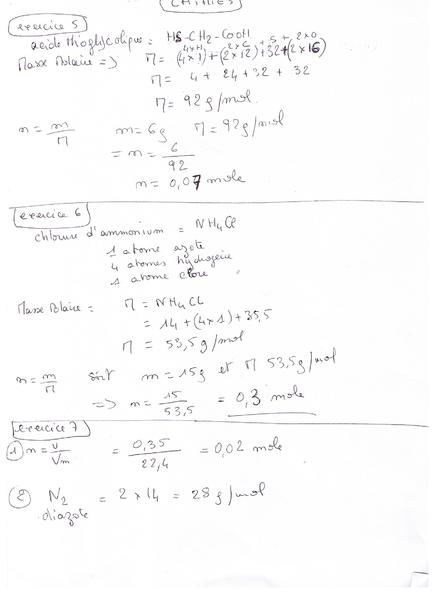 CHIMIES
exercice 5
acide thioglycolique = HS-CH2-COOH
4×H 2×C + S + 2×O
Masse Molaire => M = (4×1)+(2×12)+32+(2×16)
M = 4 + 24 + 32 + 32
M = 92 g/mol.
n = m/M m = 6g M = 92g/mol
= n = 6/92
n = 0,07 mole
exercice 6
chlorure d'ammonium = NH4Cl
1 atome azote
4 atomes hydrogène
1 atome clore
Masse Molaire = M = NH4CL
= 14 + (4×1) + 35,5
M = 53,5 g/mol
n = m/M soit m = 15g et M 53,5g/mol
=> n = 15/53,5 = 0,3 mole
exercice 7
① n = v/Vm = 0,35/22,4 = 0,02 mole
② N2 = 2 × 14 = 28 g/mol
diazote